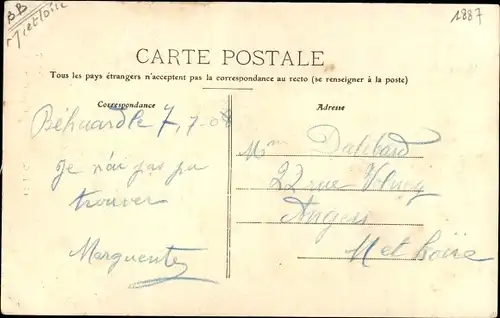 BB
M et Loire
1887
CARTE POSTALE
Tous les pays étrangers n'acceptent pas la correspondance au recto (se renseigner à la poste)
Correspondance
Adresse
Béhuard le 7, 7-08
Je n'ai pas pu
trouver
Marguerite
Mme Dalibard
22 rue Volney
Angers
M et Loire